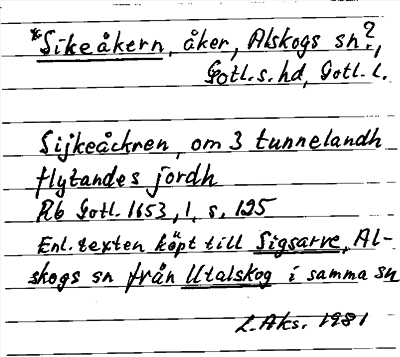 *Sikeåkern, åker, Alskogs sn?,
Gotl.s.hd, Gotl. l.
Sijkeåckren, om 3 tunnelandh
flytandes jordh
Rb Gotl. 1653, 1, s. 125
Enl. texten köpt till Sigsarve, Al-
skogs sn från Utalskog i samma sn
L. Aks. 1981